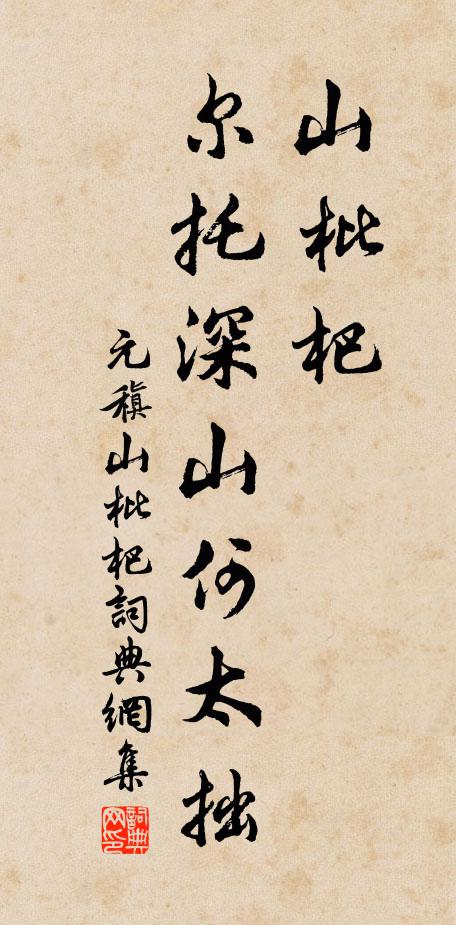 山枇杷
尔托深山何太拙
元稹山枇杷詞典網集
詞典网印